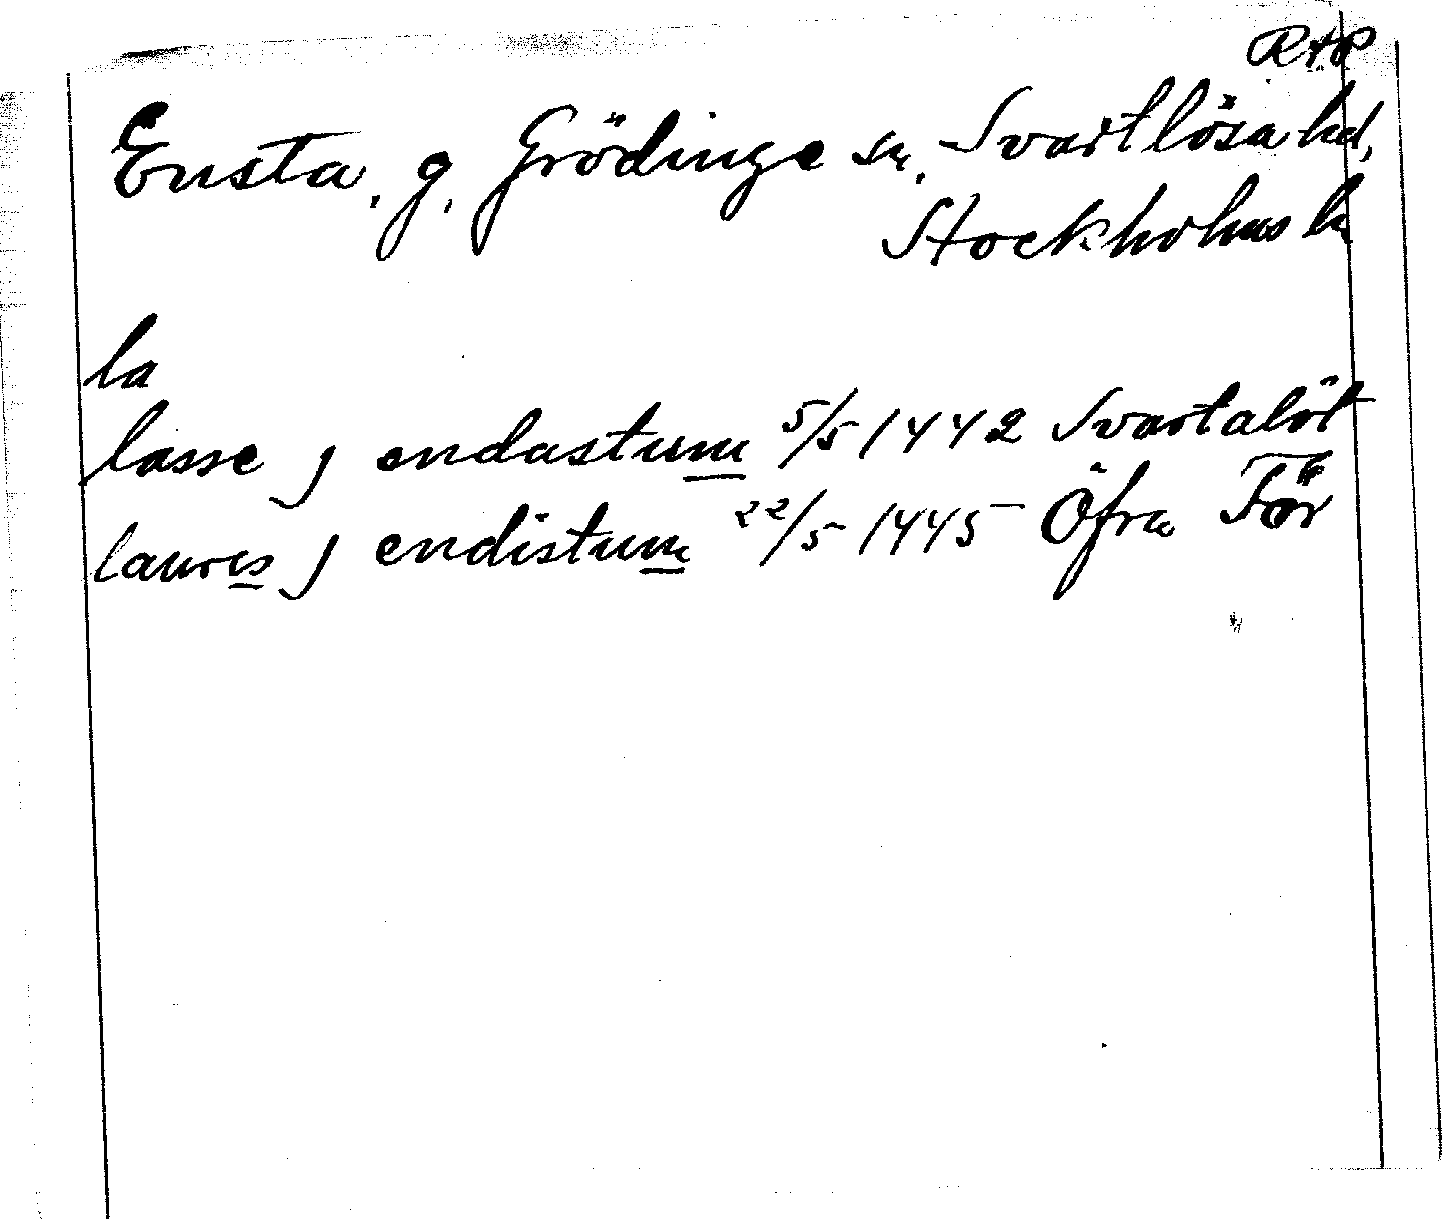 RAP
Ensta, g, Grödinge sn, Svartlösa hd,
Stockholms l
la
lasse j endastum 5/5 1442 Svartalöt
laur​es j endistum 22/5 1445 Öfra Tör